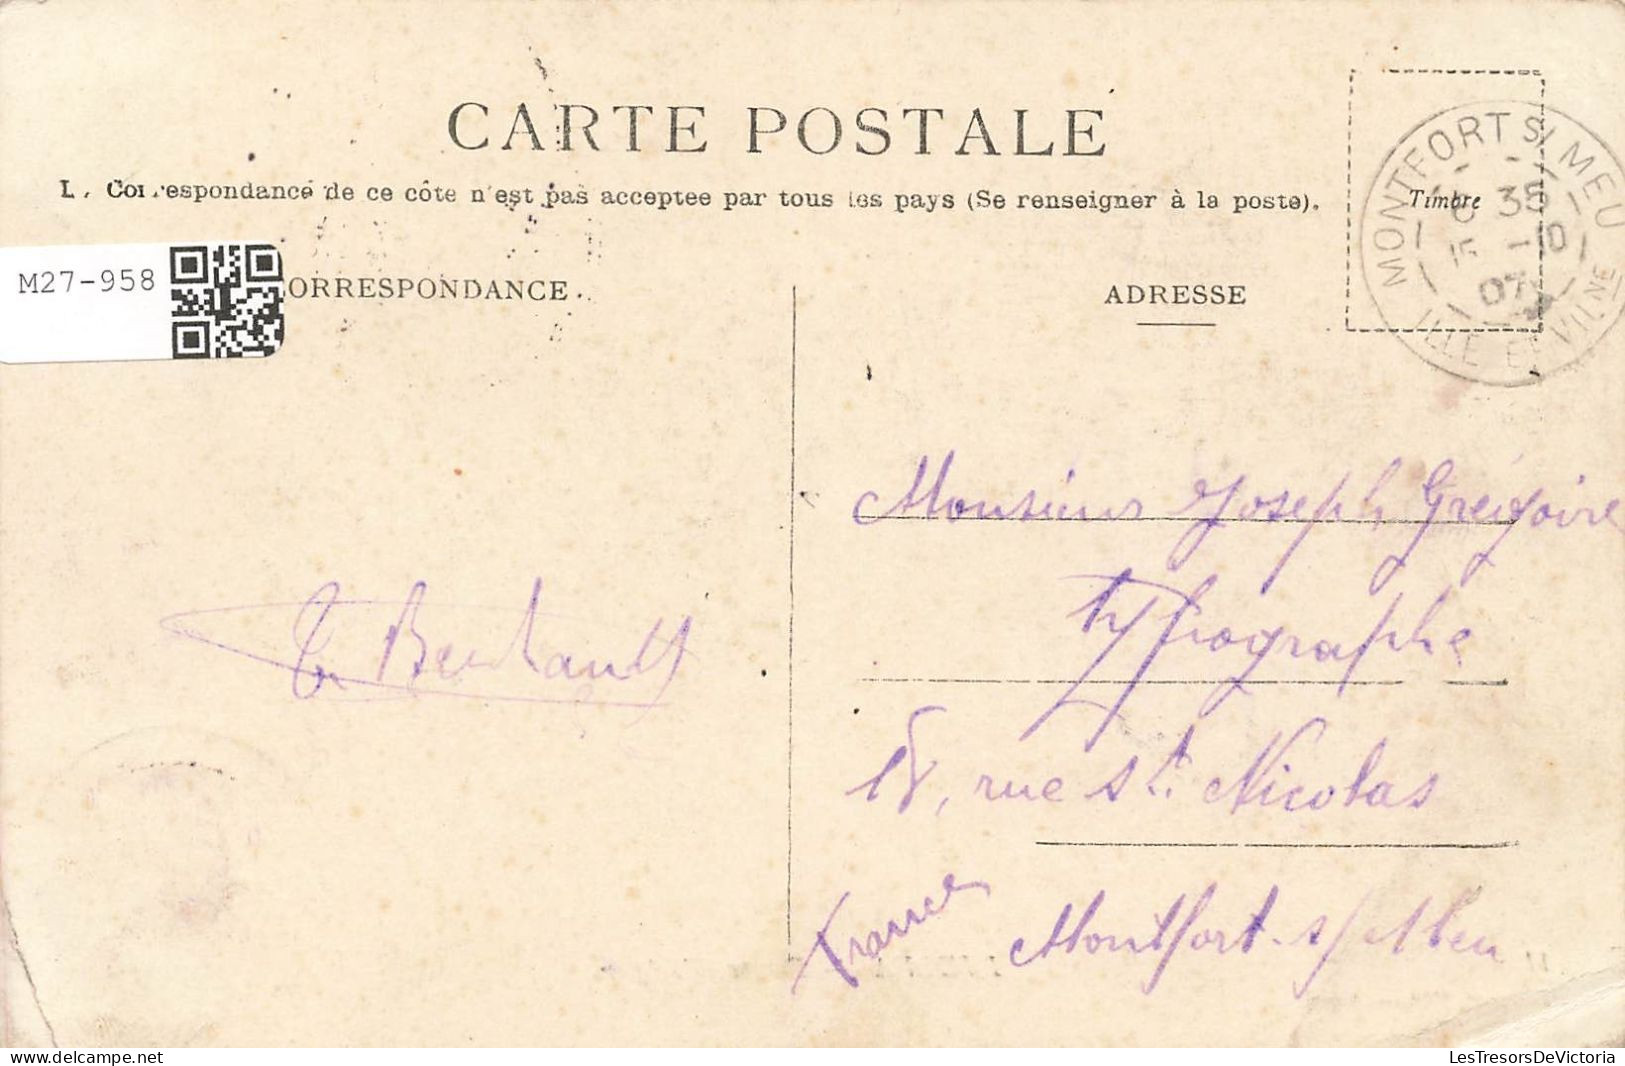 CARTE POSTALE
Correspondance de ce côte n'est pas acceptee par tous les pays (Se renseigner à la poste).
Timbre
MONTFORT S/ MEU
35
-10
07
ILLE ET VILNE
M27-958
ORRESPONDANCE.
ADRESSE
Monsieur Joseph Grégoire
typographe
Berthault
rue St. Nicolas
France
Montfort-s/Meu
delcampe.net
LesTresorsDeVictoria